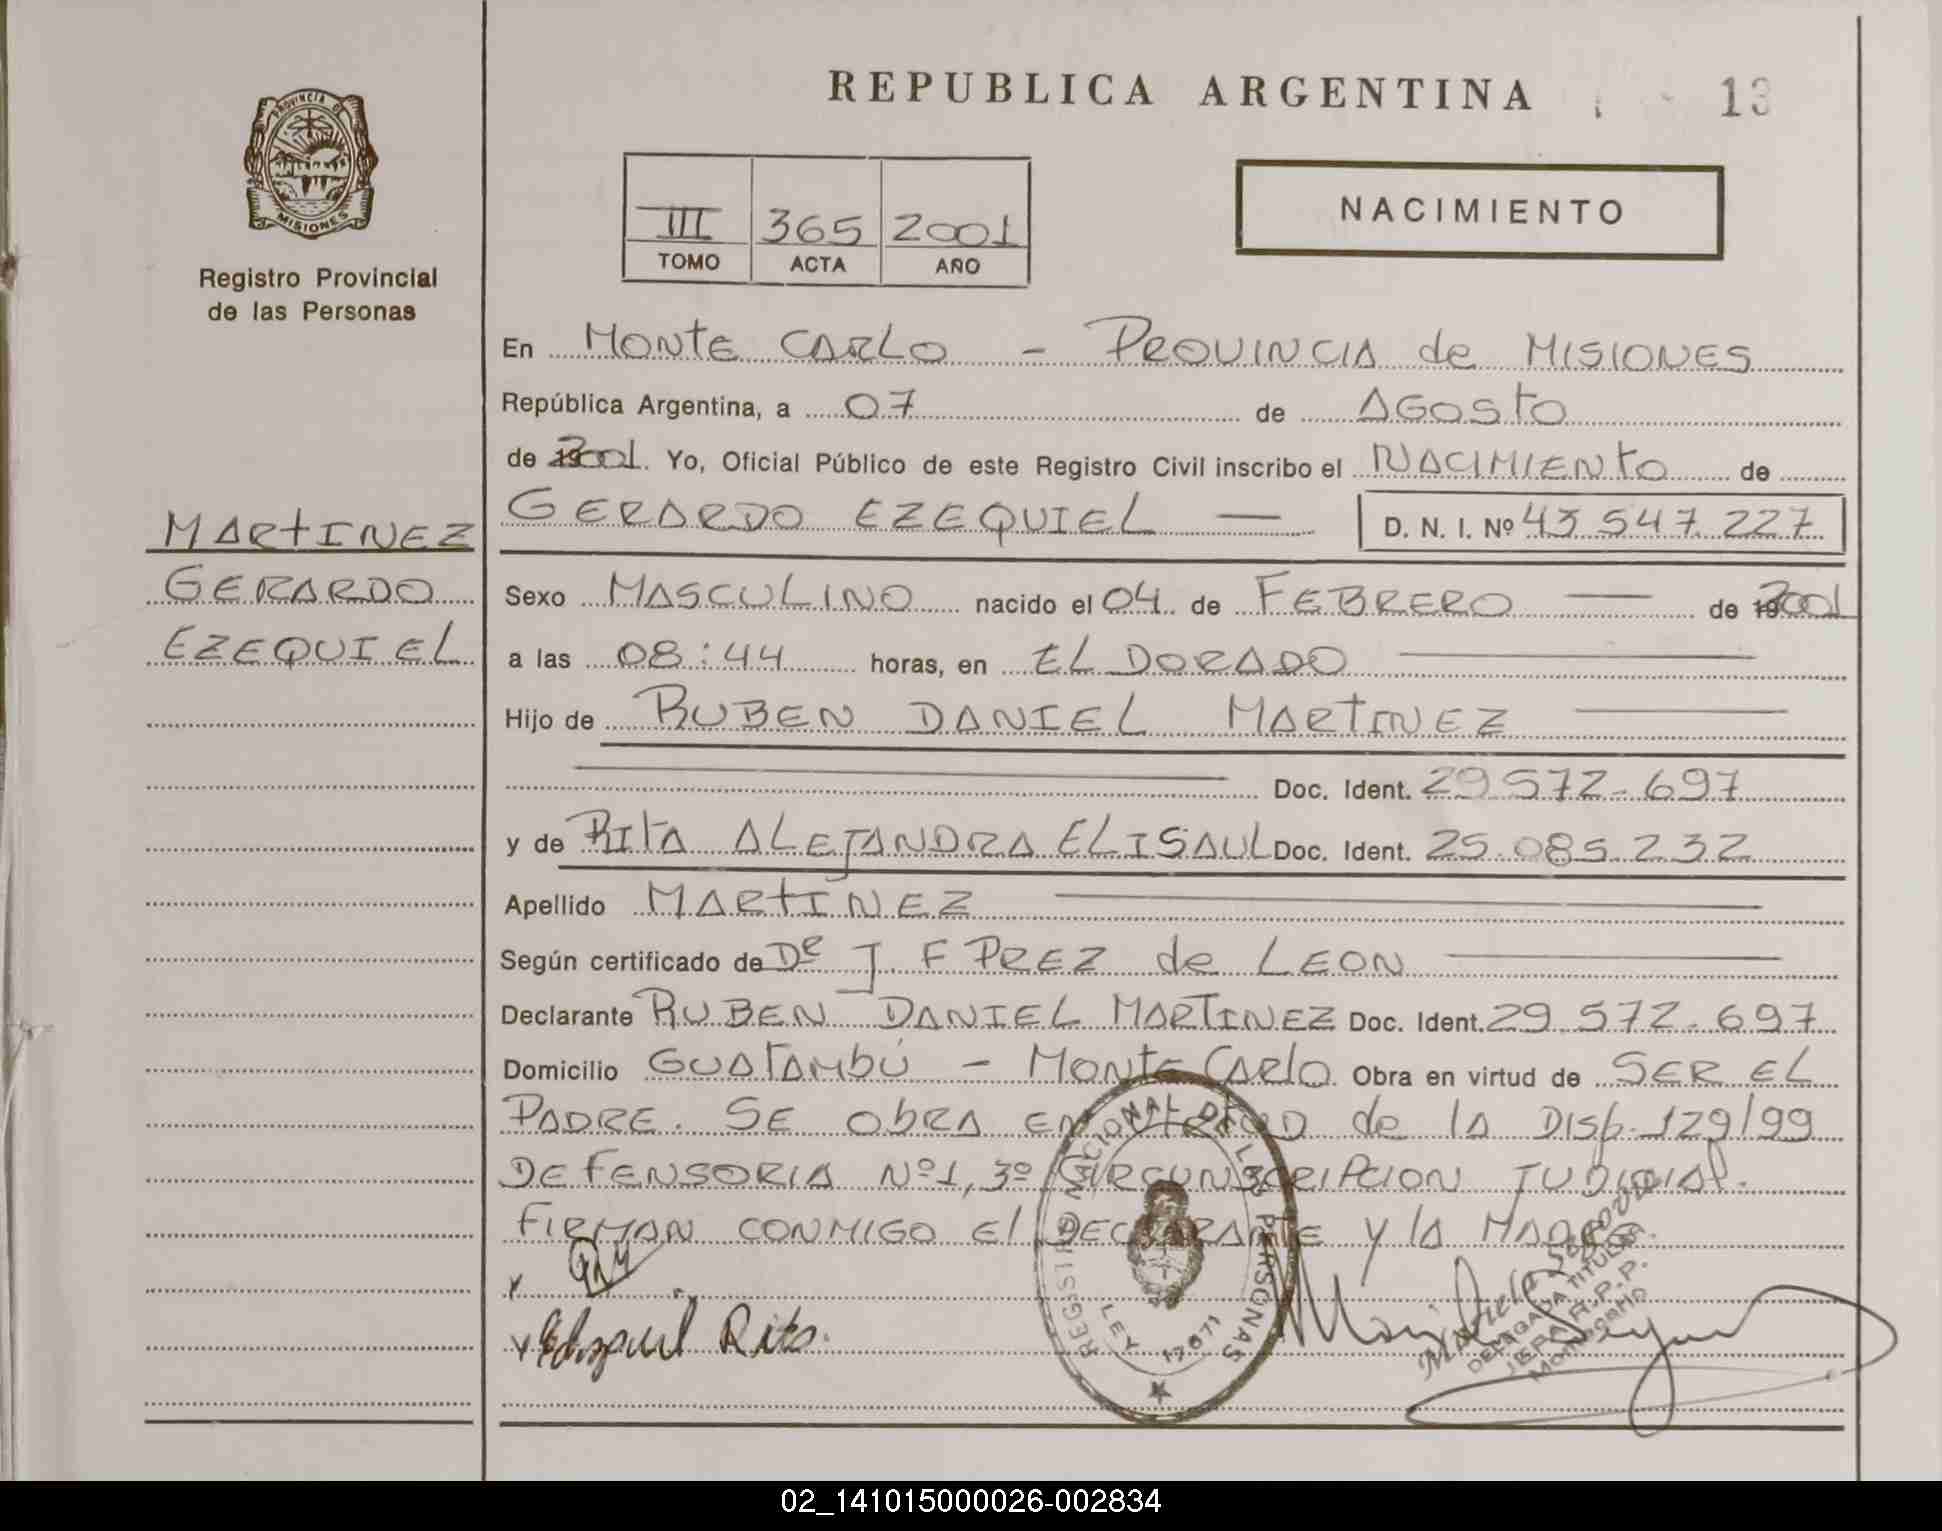 REPUBLICA ARGENTINA
13
PROVINCIA DE
MISIONES
Registro Provincial
de las Personas
III 365 2001
TOMO ACTA AÑO
NACIMIENTO
En MONTE CARLO - PROVINCIA de MISIONES
República Argentina, a 07 de AGOSTO
de 2001. Yo, Oficial Público de este Registro Civil inscribo el NACIMIENTO de
GERARDO EZEQUIEL — D. N. I. Nº 43.547.227
MARTINEZ
GERARDO
EZEQUIEL
Sexo MASCULINO nacido el 04 de FEBRERO — de 2001
a las 08:44 horas, en EL DORADO
Hijo de RUBEN DANIEL MARTINEZ
Doc. Ident. 29.572.697
y de RITA ALEJANDRA ELISAUL Doc. Ident. 25.085.232
Apellido MARTINEZ
Según certificado de Dr J. F PREZ de LEON
Declarante RUBEN DANIEL MARTINEZ Doc. Ident. 29.572.697
Domicilio GUATAMBÚ - MONTE CARLO Obra en virtud de SER EL
PADRE. SE OBRA EN de la DISP. 129/99
DEFENSORIA Nº1, 3º CIRCUNSCRIPCION JUDICIAL.
FIRMAN CONMIGO El DECLARANTE Y LA MADRE.
REGISTRO NACIONAL DE LAS PERSONAS
LEY 17671
DELEGADA TITULAR
Montecarlo
x
x Rita.
02_141015000026-002834